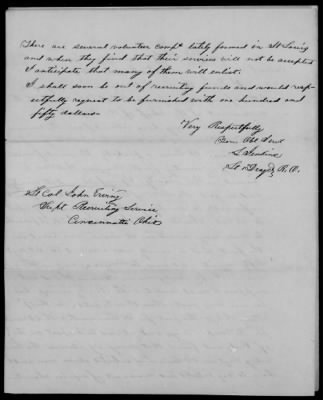 There are several volunteer comps lately formed in St Louis
and when they find that their services will not be accepted
I anticipate that many of them will enlist.
I shall soon be out of recruiting funds and would resp-
ectfully request to be furnished with one hundred and
fifty dollars.
Very Respectfully
Your Obt Servt
Lt Drags U.S.A.
Lt Col John Erving
Supt Recruiting Service
Cincinnatti Ohio